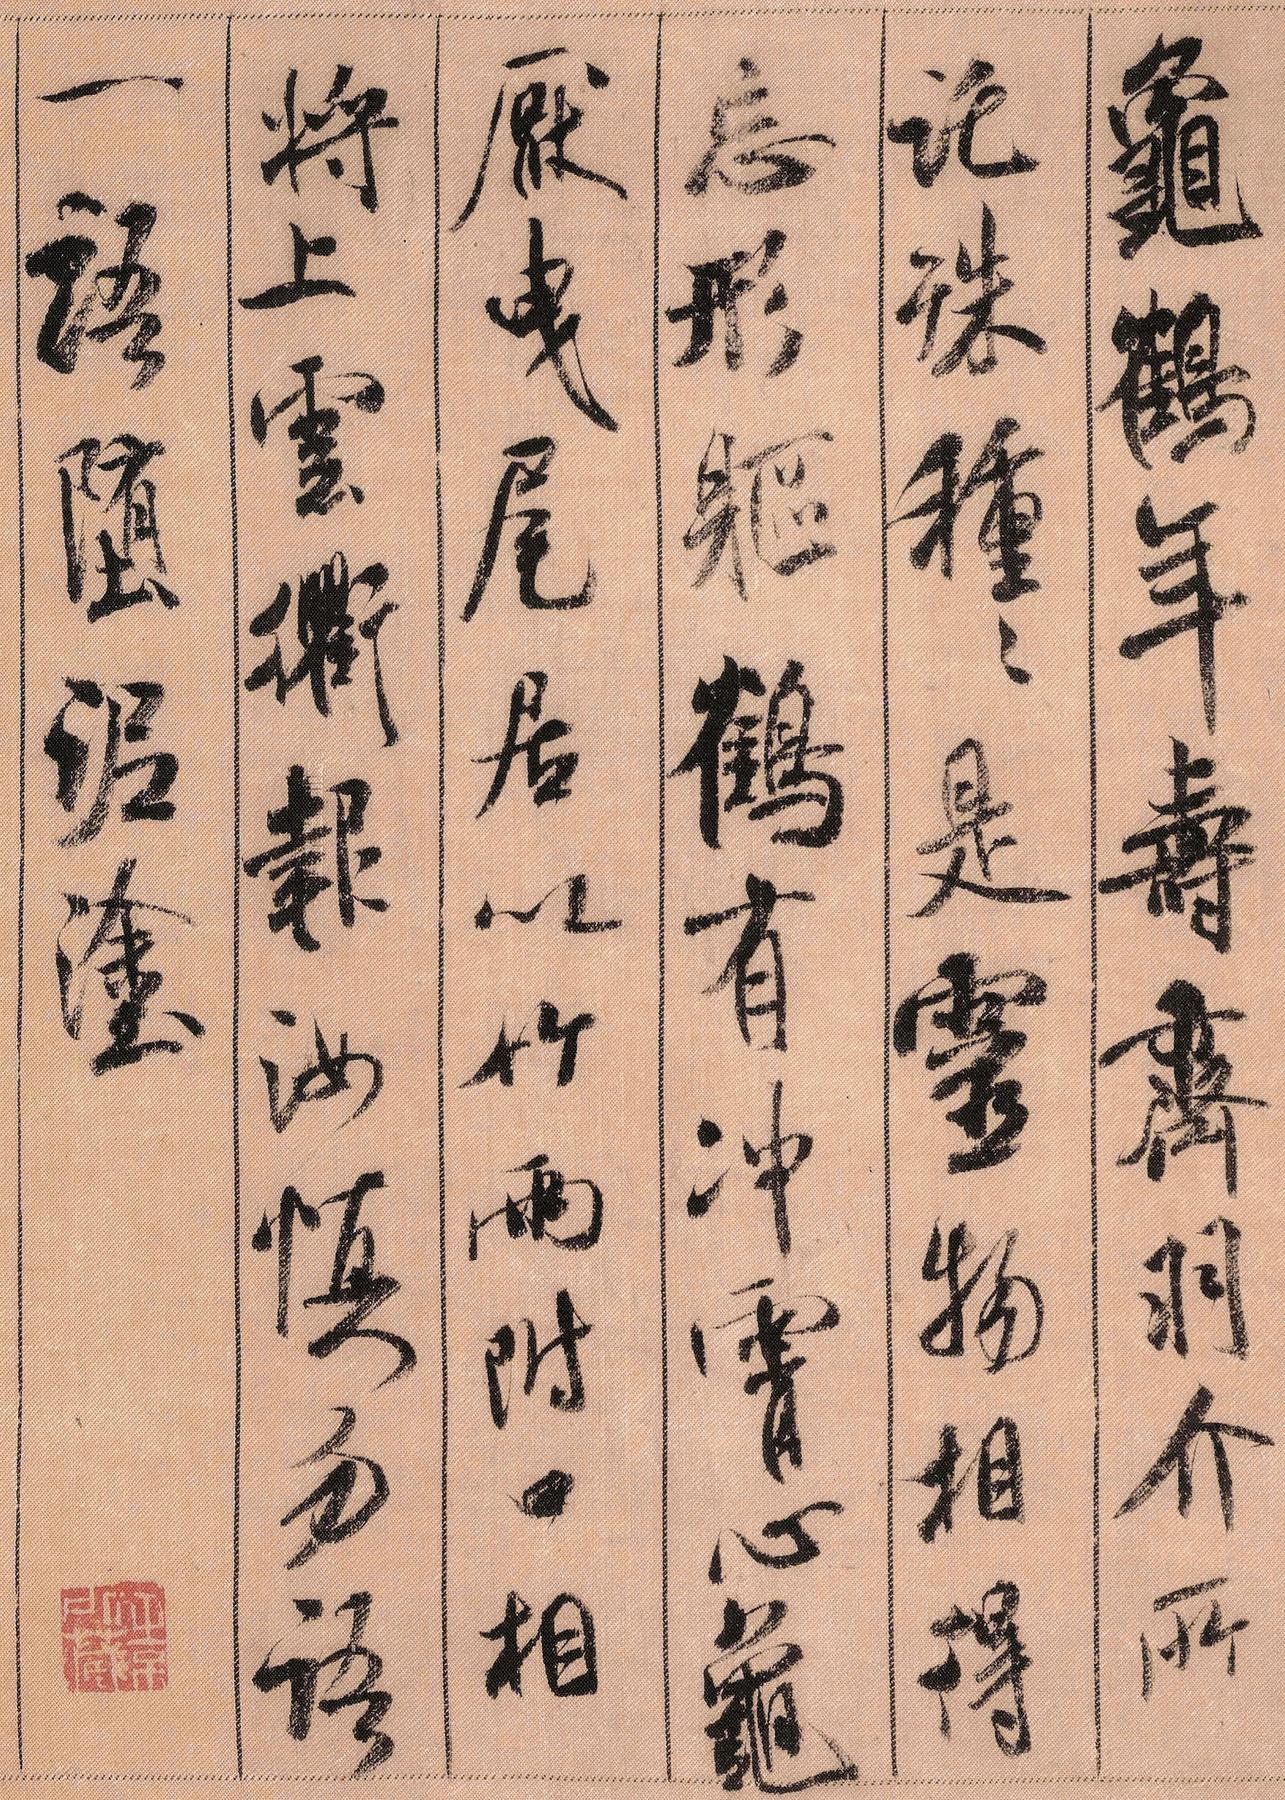 龜鶴年壽齊羽介所
託殊種〻是靈物相得
忘形軀鶴有沖霄心龜
厭曳尾居以竹兩附口相
將上雲衢報汝慎勿語
一語墮泥塗